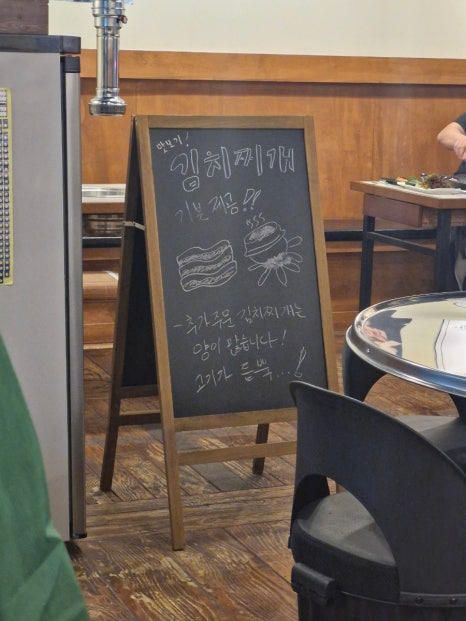 맛보기!
김치찌개
기본 제공!!
- 추가주문 김치찌개는
양이 많습니다!
고기가 듬뿍...!